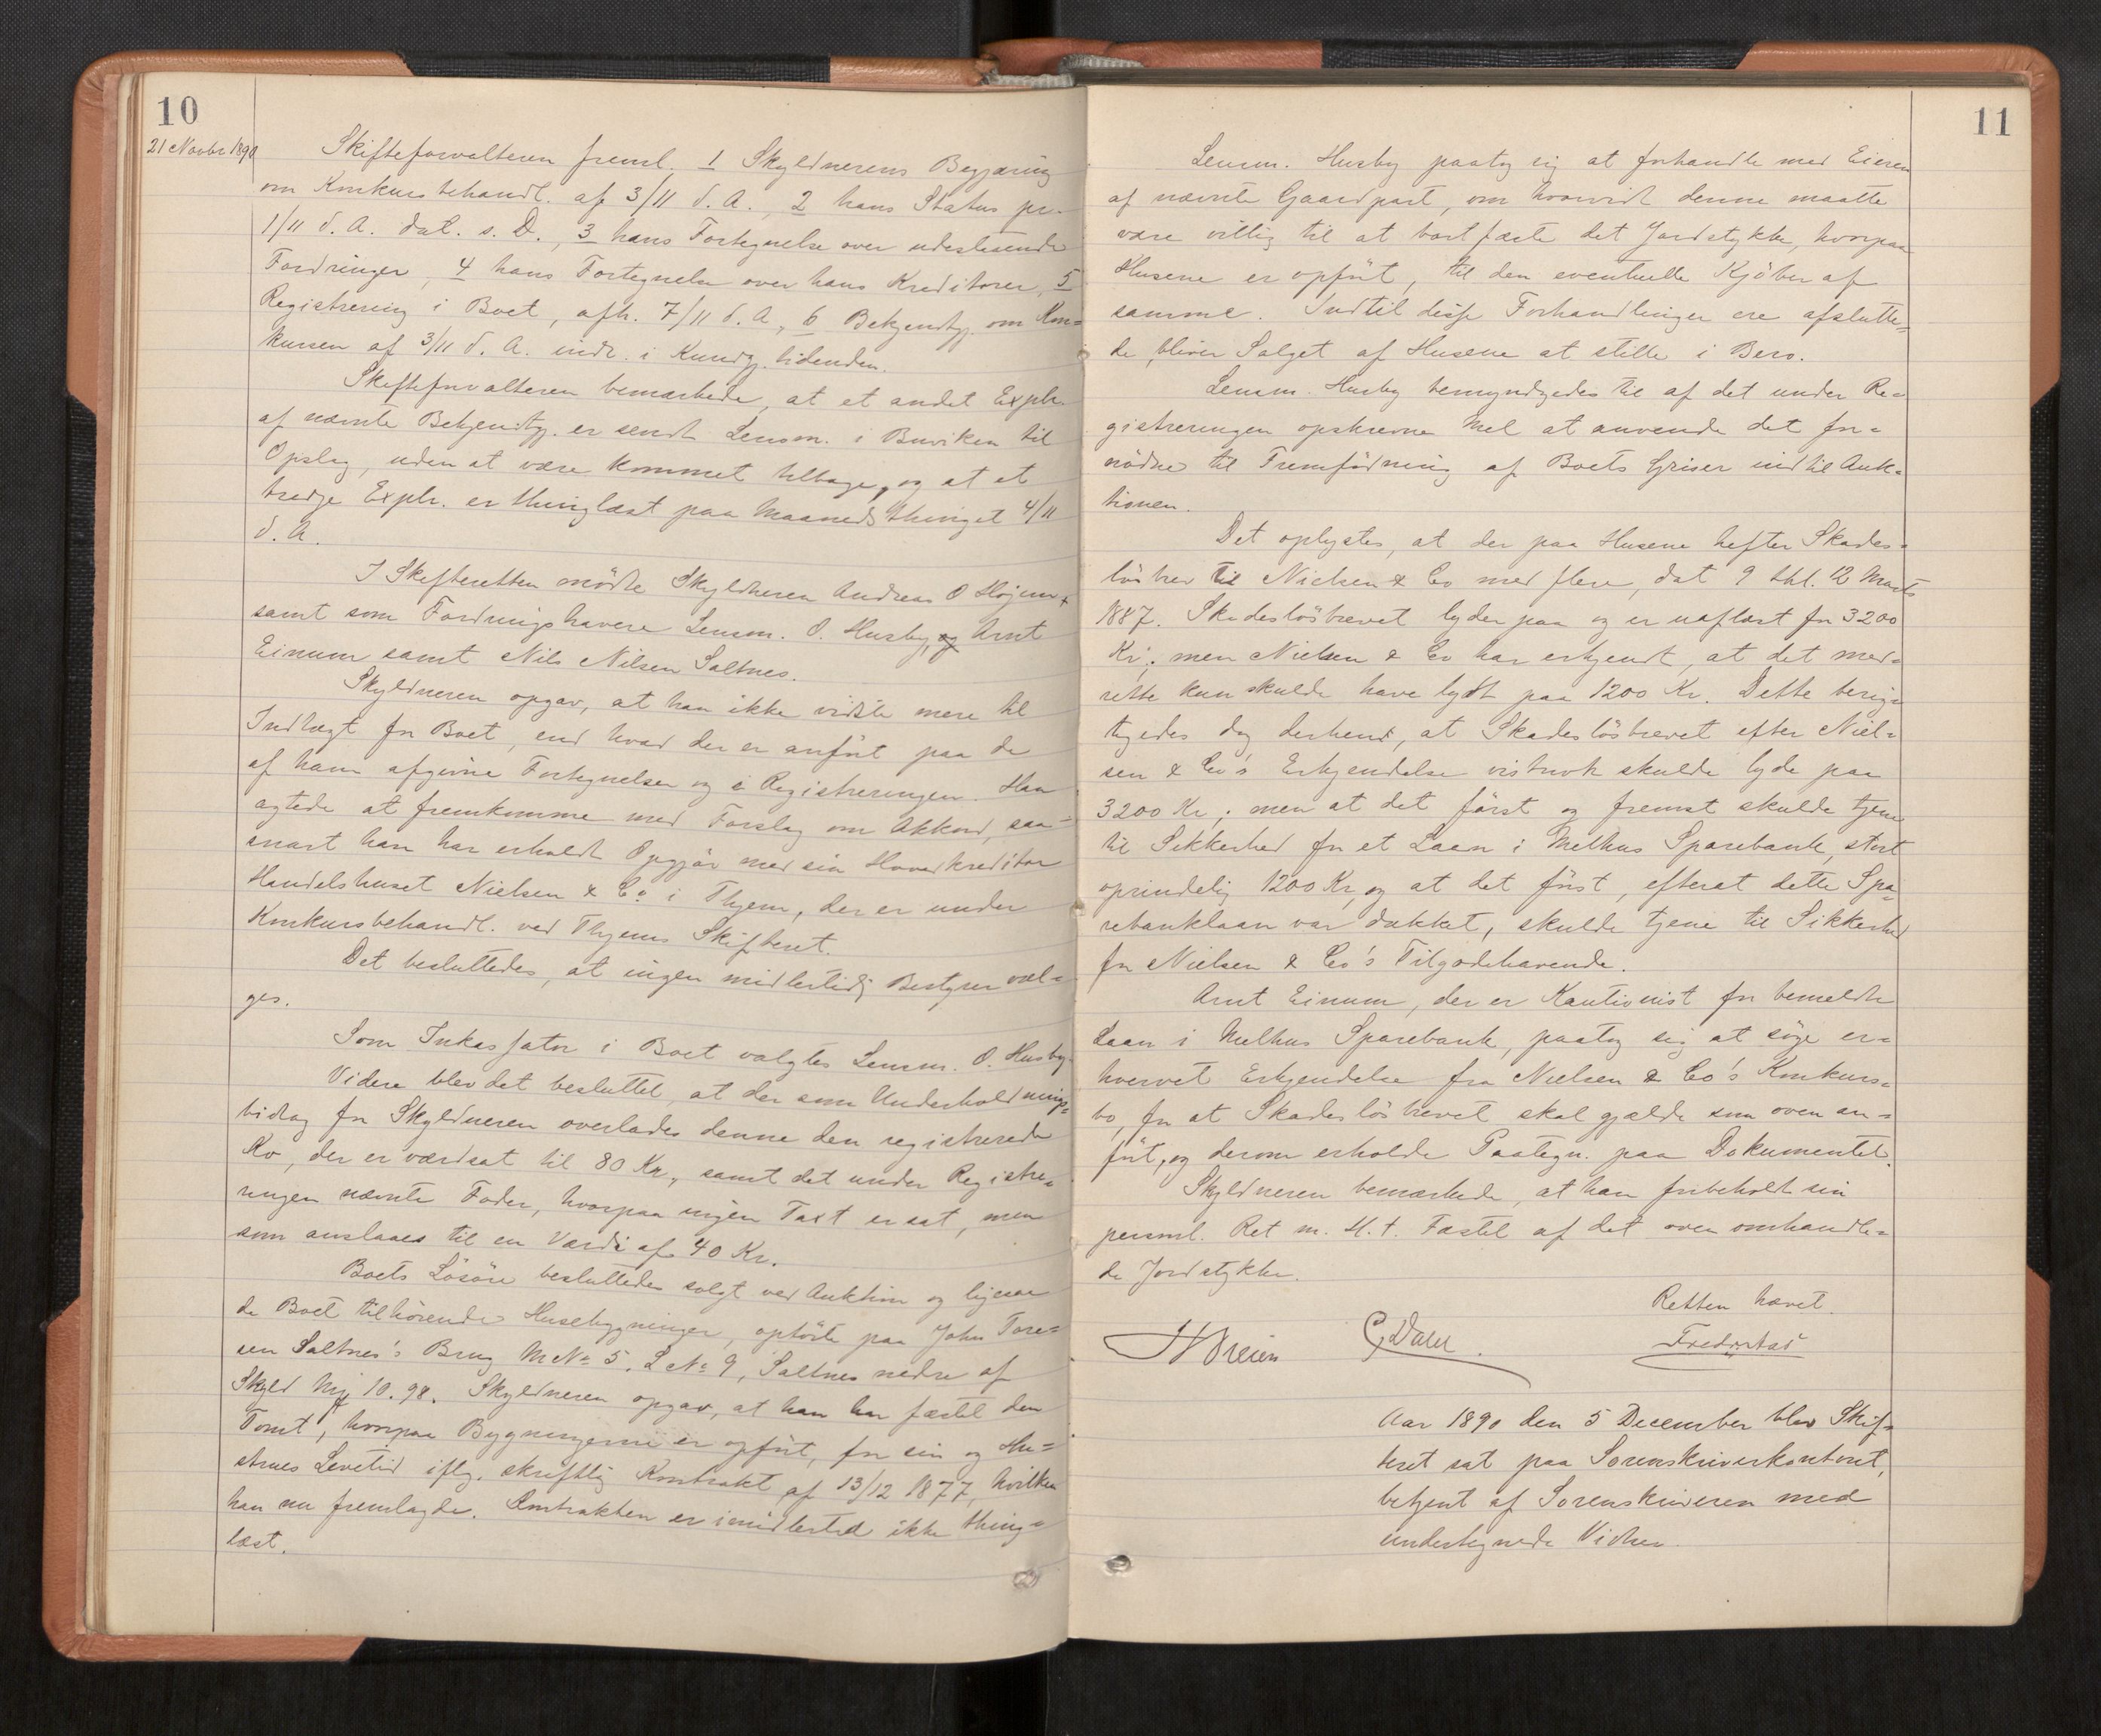 10
21 Novbr 1890
Skifteforvalteren freml. 1 Skyldnerens Begjæring
om Konkursbehandl. af 3/11 d. A., 2 hans Status pr.
1/11 d. A. dat. s. D., 3 hans Fortegnelse over udestaaende
Fordringer, 4 hans Fortegnelse over hans Kreditorer, 5
Registrering i Boet, afh. 7/11 d. A., 6 Bekjendtg. om Kon=
kursen af 3/11 d. A. indr. i Kundgj. tidenden.
Skifteforvalteren bemærkede, at et andet Explr.
af nævnte Bekjendtg. er sendt Lensm. i Buviken til
Opslag, uden at være kommet tilbage, og at et
tredje Explr. er thinglæst paa Maanedsthinget 4/11
d. A.
I Skifteretten mödte Skyldneren Andreas O Höjem
samt som Fordringshavere Lensm. O. Husby, og Arnt
Einum samt Nils Nilsen Saltnes.
Skyldneren opgav, at han ikke vidste mere til
Indtægt for Boet, end hvad der er anfört paa de
af ham afgivne Fortegnelser og i Registreringen. Han
agtede at fremkomme med Forslag om Akkord, saa=
snart han har erholdt Opgjör med sin Hovedkreditor
Handelshuset Nielsen & Co i Thjem, der er under
Konkursbehandl. ved Thjems Skifteret.
Det besluttedes, at ingen midlertidig Bestyrer væl=
ges.
Som Inkassator i Boet valgtes Lensm. O. Husby.
Videre blev det besluttet, at der som Underholdnings=
bidrag for Skyldneren overlades denne den registrerede
Ko, der er værdsat til 80 Kr., samt det under Registre=
ringen nævnte Foder, hvorpaa ingen Taxt er sat, men
som anslaaes til en Værdi af 40 Kr.
Boets Lösöre besluttedes solgt ved Auktion og ligesaa
de Boet tilhörende Husebygninger, opförte paa John Tore=
sen Saltnes's Brug M No 5, L No 9, Saltnes nedre af
Skyld 10.98. Skyldneren opgav, at han har fæstet den
Tomt, hvorpaa Bygningerne er opfört, for sin og Hu=
strues Levetid iflg. skriftlig Kontrakt af 13/12 1877, hvilken
han nu fremlagde. Kontrakten er imidlertid ikke thing=
læst.
11
Lensm. Husby paatog sig at forhandle med Eieren
af nævnte Gaardpart, om hvorvidt denne maatte
være villig til at bortfæste det Jordstykke, hvorpaa
Husene er opfört, til den eventuelle Kjöber af
samme. Indtil disse Forhandlinger ere afslutte=
de, bliver Salget af Husene at stille i Bero.
Lensm. Husby bemyndigedes til af det under Re=
gistreringen opskrevne Mel at anvende det for=
nödne til Fremfödning af Boets Griser indtil Auk=
tionen.
Det oplystes, at der paa Husene hefter Skades=
lösbrev til Nielsen & Co med flere, dat 9 thl. 12 Marts
1887. Skadeslösbrevet lyder paa og er uaflæst for 3200
Kr; men Nielsen & Co har erkjendt, at det med=
rette kun skulde have lydt paa 1200 Kr. Dette berig=
tigedes dog derhend, at Skadeslösbrevet efter Niel=
sen & Co's Erkjendelse vistnok skulde lyde paa
3200 Kr; men at det först og fremst skulde tjene
til Sikkerhed for et Laan i Melhus Sparebank, stort
oprindelig 1200 Kr, og at det först, efterat dette Spa=
rebanklaan var dækket, skulde tjene til Sikkerhed
for Nielsen & Co's Tilgodehavende.
Arnt Einum, der er Kautionist for bemeldte
Laan i Melhus Sparebank, paatog sig at söge er=
hvervet Erkjendelse fra Nielsen & Co's Konkurs=
bo, for at Skadeslösbrevet skal gjælde som oven an=
fört, og derom erholde Paategn. paa Dokumentet.
Skyldneren bemærkede, at han forbeholdt sin
personl. Ret m. H. t. Fæstet af det oven omhandle=
de Jordstykke.
Retten hævet.
Fredrstad
Aar 1890 den 5 December blev Skif=
teret sat paa Sorenskriverkontoret,
betjent af Sorenskriveren med
undertegnede Vidner.